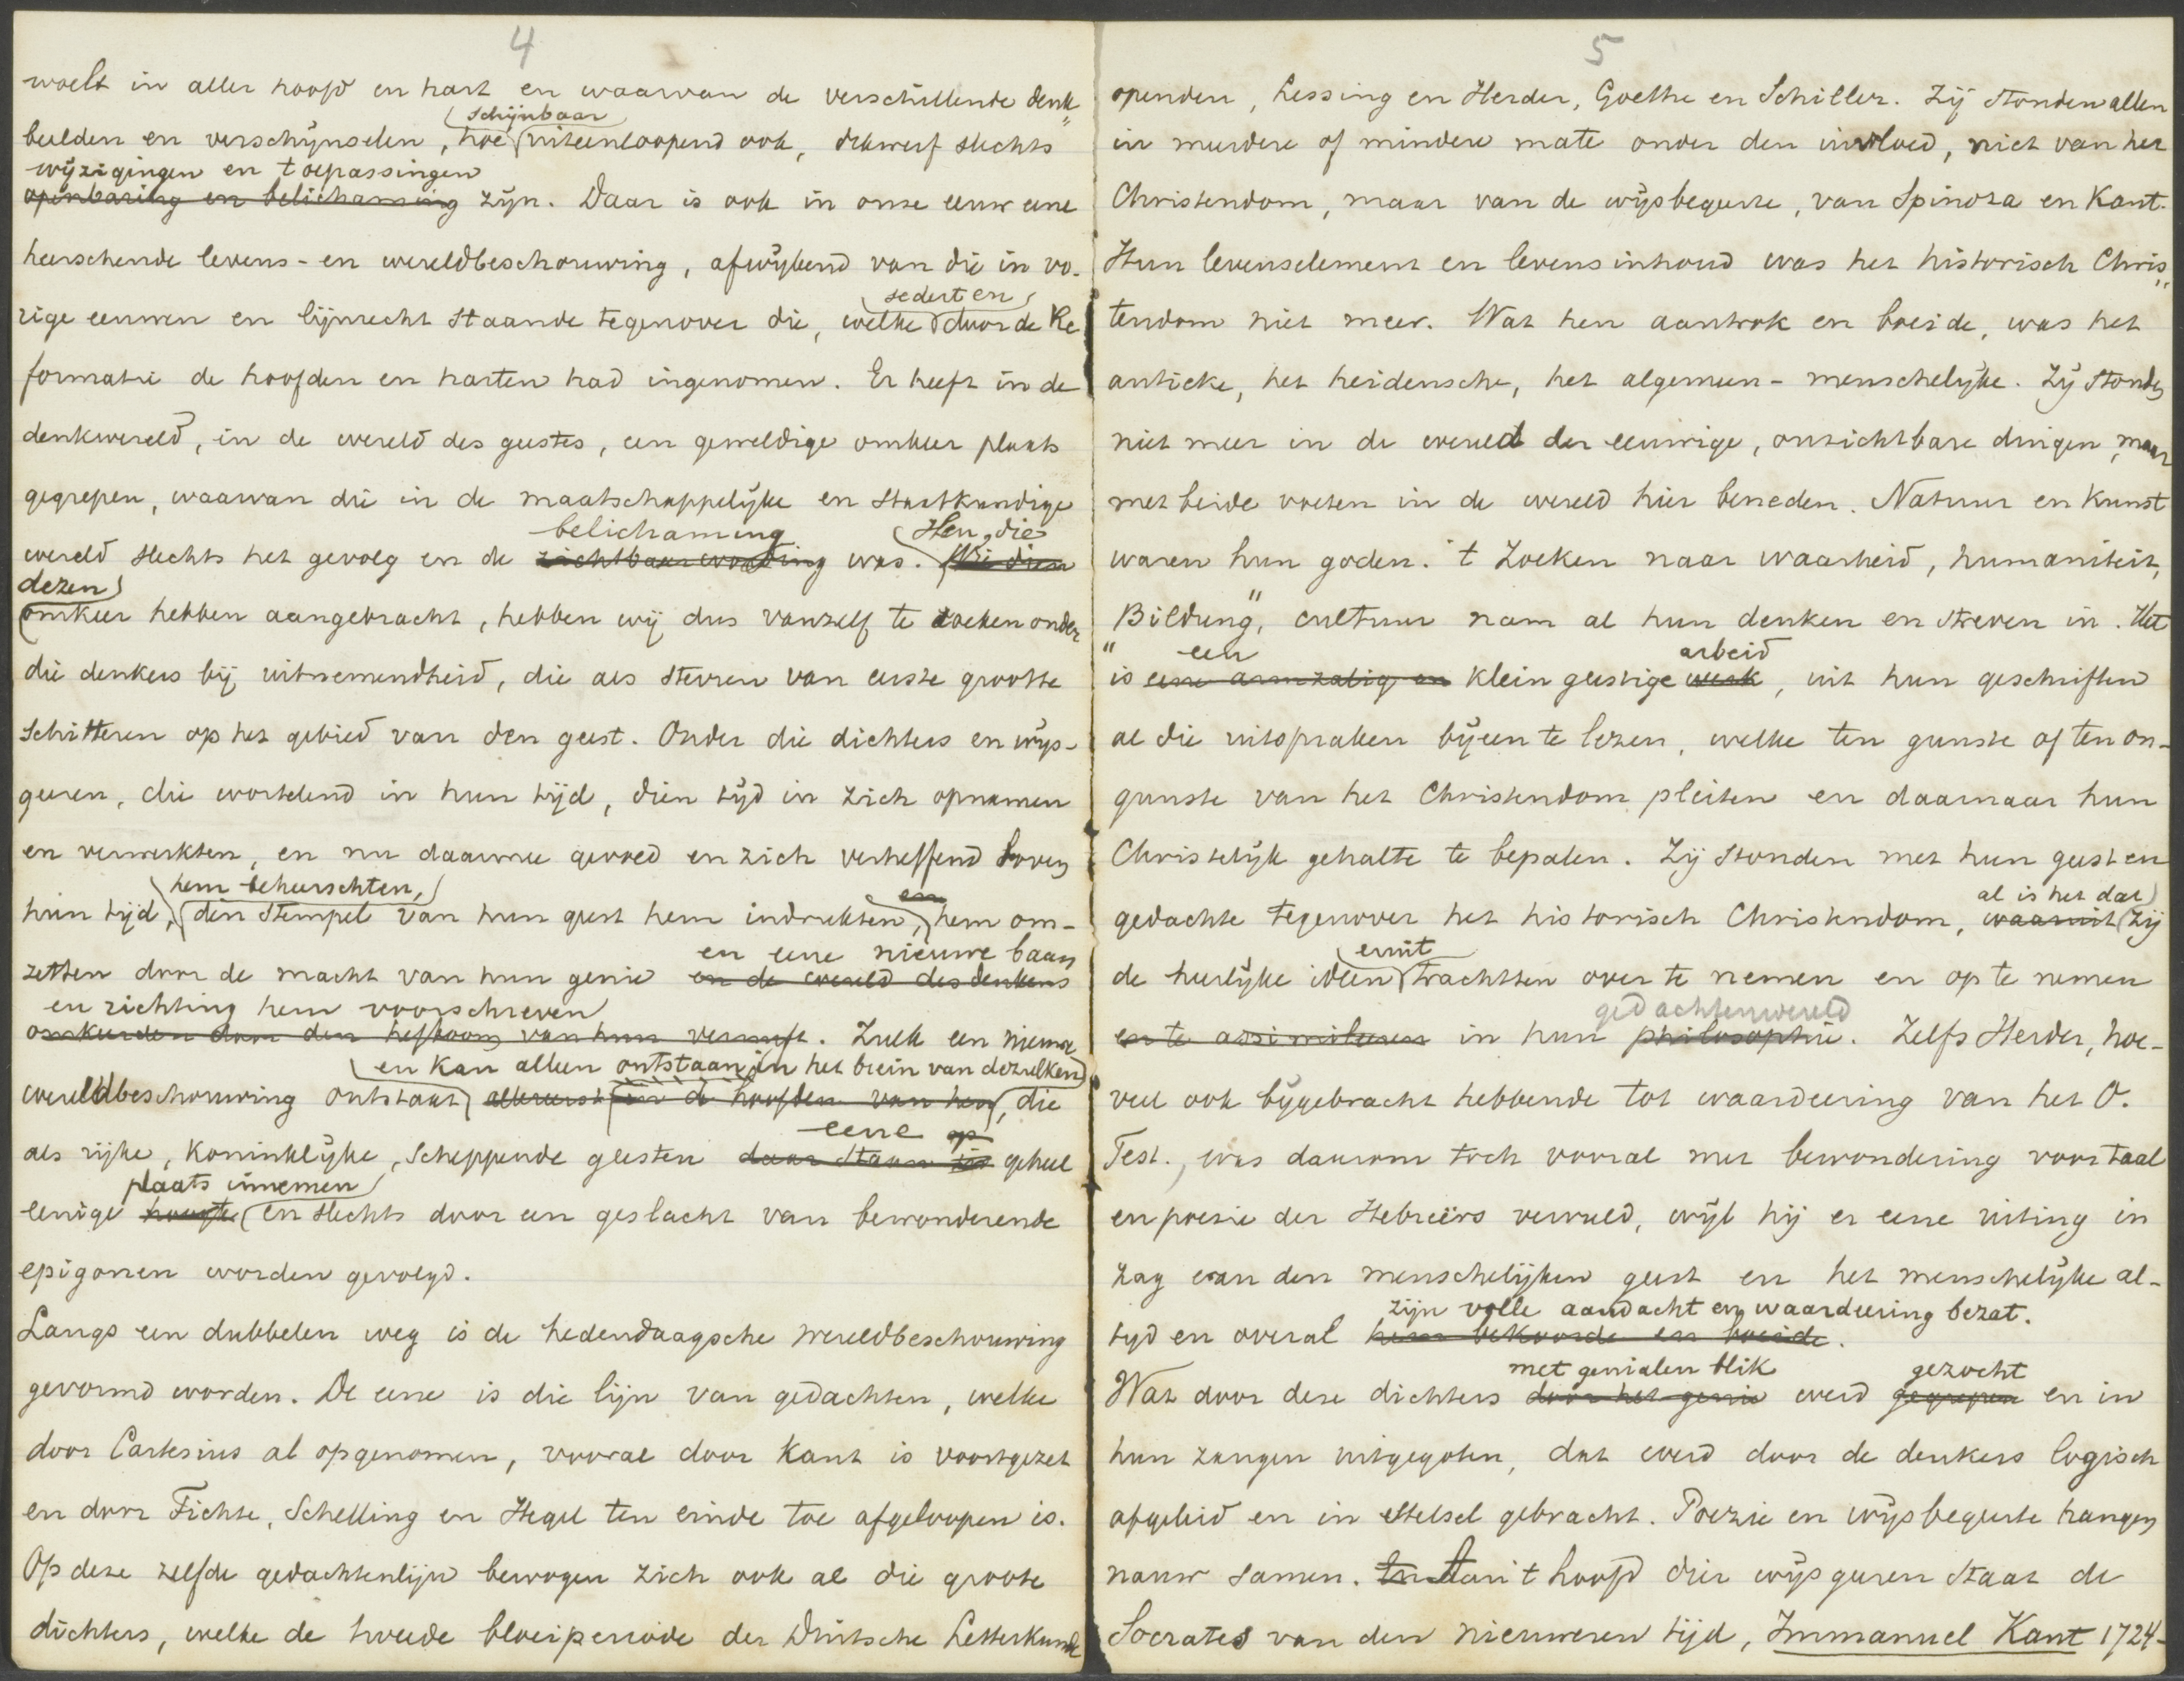 4
woelt in aller hoofd en hart en waarvan de verschillende denk„
schijnbaar
beelden en verschijnselen, hoe uiteenloopend ook, dikwerf slechts
wijzigingen en toepassingen
openbaring en belichaming zijn. Daar is ook in onze eeuw eene
heerschende levens- en wereldbeschouwing, afwijkend van die in vo-
sedert en
rige eeuwen en lijnrecht staande tegenover die, welke door de Re
formatie de hoofden en harten had ingenomen. Er heeft in de
denkwereld, in de wereld des geestes, een geweldige omkeer plaats
gegrepen, waarvan die in de maatschappelijke en staatkundige
belichaming Hen, die
wereld slechts het gevolg en de zichtbaarwording was. Wie dien
dezen
omkeer hebben aangebracht, hebben wij dus vanzelf te zoeken onder
die denkers bij uitnemendheid, die als sterren van eerste grootte
schitteren op het gebied van den geest. Onder die dichters en wijs-
geeren, die wortelend in hun tijd, dien tijd in zich opnamen
en verwerkten, en nu daarmee gevoed en zich verheffend boven
hem beheerschten, en
hun tijd, den stempel van hun geest hem indrukten, hem om-
en eene nieuwe baan
zetten door de macht van hun genie en de wereld des denkens
en richting hem voorschreven
omkeerden door den hefboom van hun vernuft. Zulk een nieuwe
en kan alleen ontstaan in het brein van dezulken
wereldbeschouwing ontstaat allereerst in de hoofden van hen, die
eene op
als rijke, koninklijke, scheppende geesten daar staan geheel
plaats innemen
eenige hoogte en slechts door een geslacht van bewonderende
epigonen worden gevolgd.
Langs een dubbelen weg is de hedendaagsche wereldbeschouwing
gevormd worden. De eene is die lijn van gedachten, welke
door Cartesius al opgenomen, vooral door Kant is voortgezet
en door Fichte, Schelling en Hegel ten einde toe afgeloopen is.
Op deze zelfde gedachtenlijn bewogen zich ook al die groote
dichters, welke de tweede bloeiperiode der Duitsche Letterkunde
5
openden, Lessing en Herder, Goethe en Schiller. Zij stonden allen
in meerdere of mindere mate onder den invloed, niet van het
Christendom, maar van de wijsbegeerte, van Spinoza en Kant.
Hun levenselement en levensinhoud was het historisch Chris„
tendom niet meer. Wat hen aantrok en boeide, was het
antieke, het heidensche, het algemeen-menschelijke. Zij stonden
niet meer in de wereld der eeuwige, onzichtbare dingen, maar
met beide voeten in de wereld hier beneden. Natuur en kunst
waren hun goden. 't Zoeken naar waarheid, humaniteit,
„Bildung", cultuur nam al hun denken en streven in. Het
een arbeid
is eene armzalig en kleingeestige werk, uit hun geschriften
al die uitspraken bijeen te lezen, welke ten gunste of ten on-
gunste van het Christendom pleiten en daarnaar hun
Christelijk gehalte te bepalen. Zij stonden met hun geest en
al is het dat
gedachte tegenover het historisch Christendom, waaruit zij
eruit
de heerlijke ideën trachtten over te nemen en op te nemen
gedachtenwereld
en te assimileeren in hun philosophie. Zelfs Herder, hoe-
veel ook bijgebracht hebbende tot waardeering van het O.
Test., was daarom toch vooral met bewondering voor taal
en poesie der Hebreërs vervuld, wijl hij er eene uiting in
zag van den menschelijken geest en het menschelijke al-
zijn volle aandacht en waardeering bezat.
tijd en overal hem bekoorde en boeide.
met genialen blik gezocht
Wat door deze dichters door het genie werd gegrepen en in
hun zangen uitgegoten, dat werd door de denkers logisch
afgeleid en in stelsel gebracht. Poezie en wijsbegeerte hangen
nauw samen. Aan 't hoofd dier wijsgeeren staat de
Socrates van den nieuweren tijd, Immanuel Kant 1724-